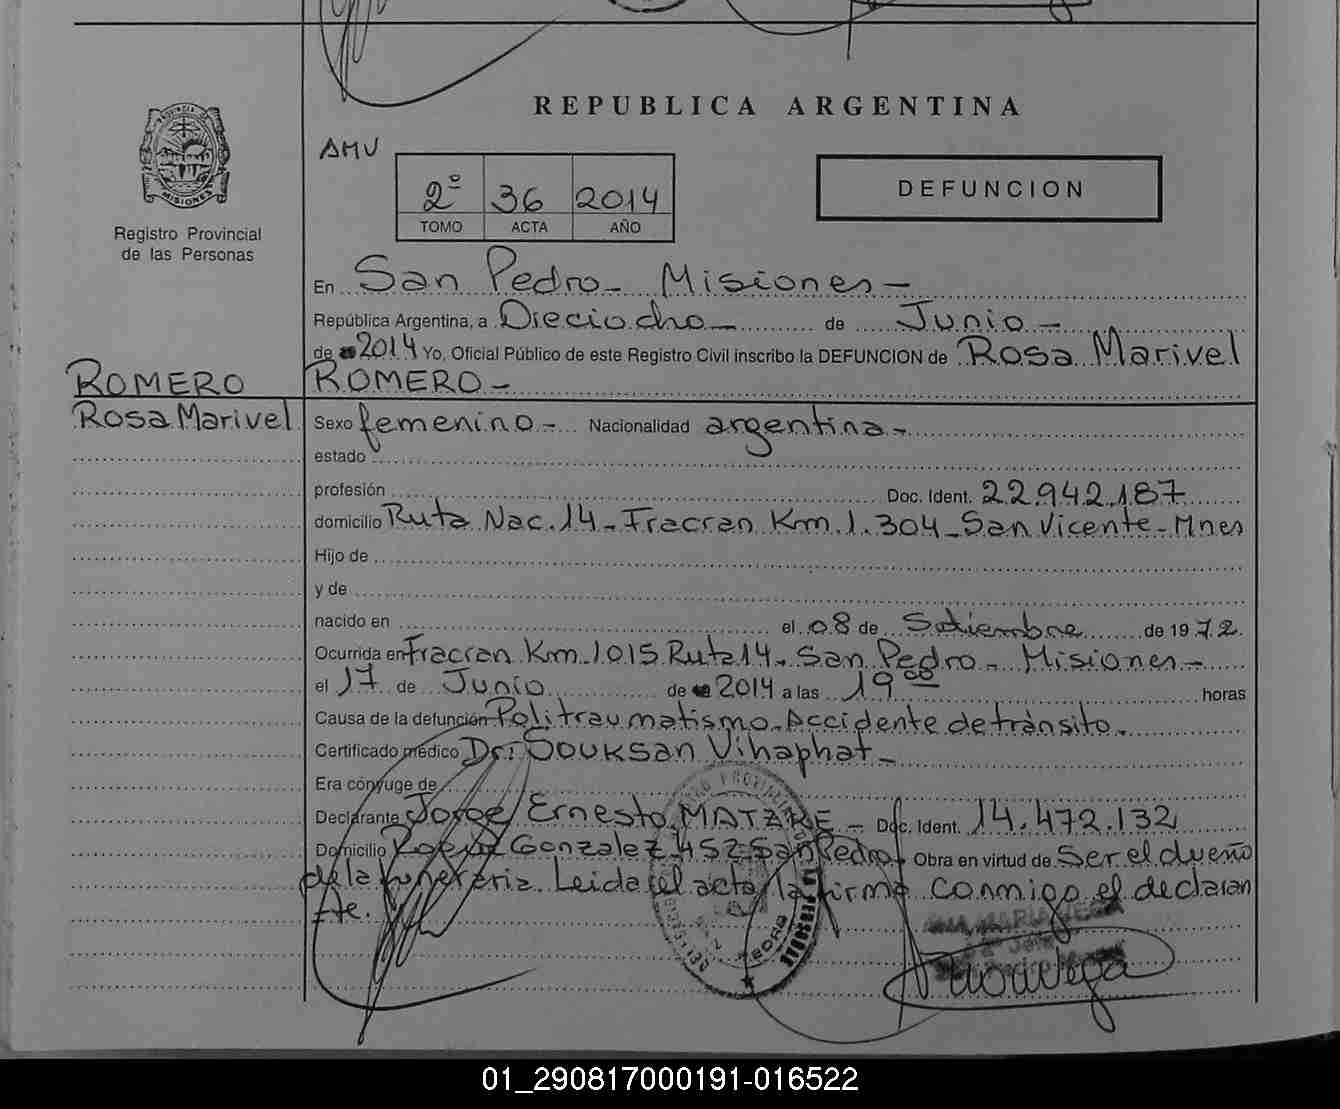 REPUBLICA ARGENTINA
PROVINCIA DE MISIONES
Registro Provincial
de las Personas
AMV
2º 36 2014
TOMO ACTA AÑO
DEFUNCION
En San Pedro - Misiones -
República Argentina, a Dieciocho - de Junio -
de 2014 Yo, Oficial Público de este Registro Civil inscribo la DEFUNCION de Rosa Marivel
ROMERO -
ROMERO
Rosa Marivel
Sexo femenino - Nacionalidad argentina -
estado
profesión Doc. Ident. 22.942.187
domicilio Ruta Nac. 14 - Fracran Km. 1.304 - San Vicente - Mnes
Hijo de
y de
nacido en el 08 de Setiembre de 1972.
Ocurrida en Fracran Km. 1015 Ruta 14 - San Pedro - Misiones -
el 17 de Junio de 2014 a las 19 00 horas
Causa de la defunción Politraumatismo - Accidente de tránsito.
Certificado médico Dr: Souksan Vihaphat -
Era cónyuge de
Declarante Jorge Ernesto MATZKE - Doc. Ident. 14.472.132
Domicilio Gonzalez 452 San Pedro - Obra en virtud de Ser el dueño
de la funeraria. Leida el acta, la firma conmigo el declaran
te.
ANA MARIA VEGA
01_290817000191-016522